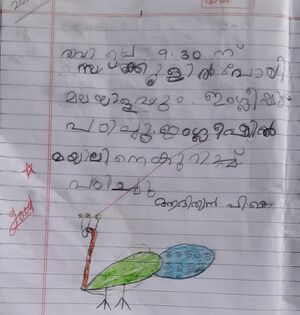 രവിലെ 9.30 ന്
സ്ക്കൂളിൽ പോയി
മലയാളവും ഇംഗ്ലീഷും
പഠിച്ചു. ഇംഗ്ലീഷിൽ
മയിലിനെകുറിച്ച്
പഠിച്ചു
Good